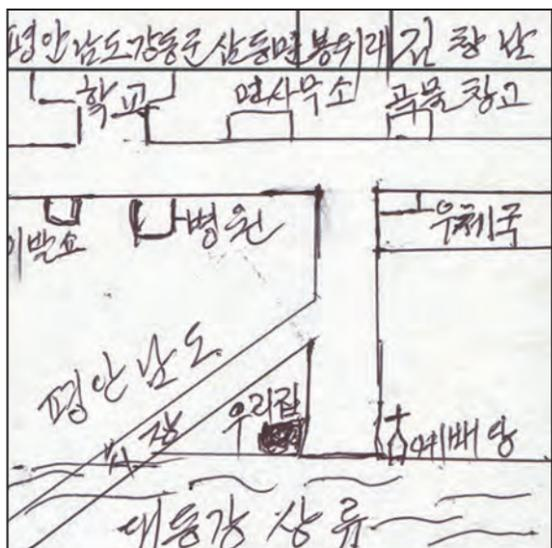 평안남도강동군 삼등면 봉위리 김창남
학교 면사무소 곡물창고
이발소 병원 우체국
평안남도
시장 우리집
예배당
대동강 상류